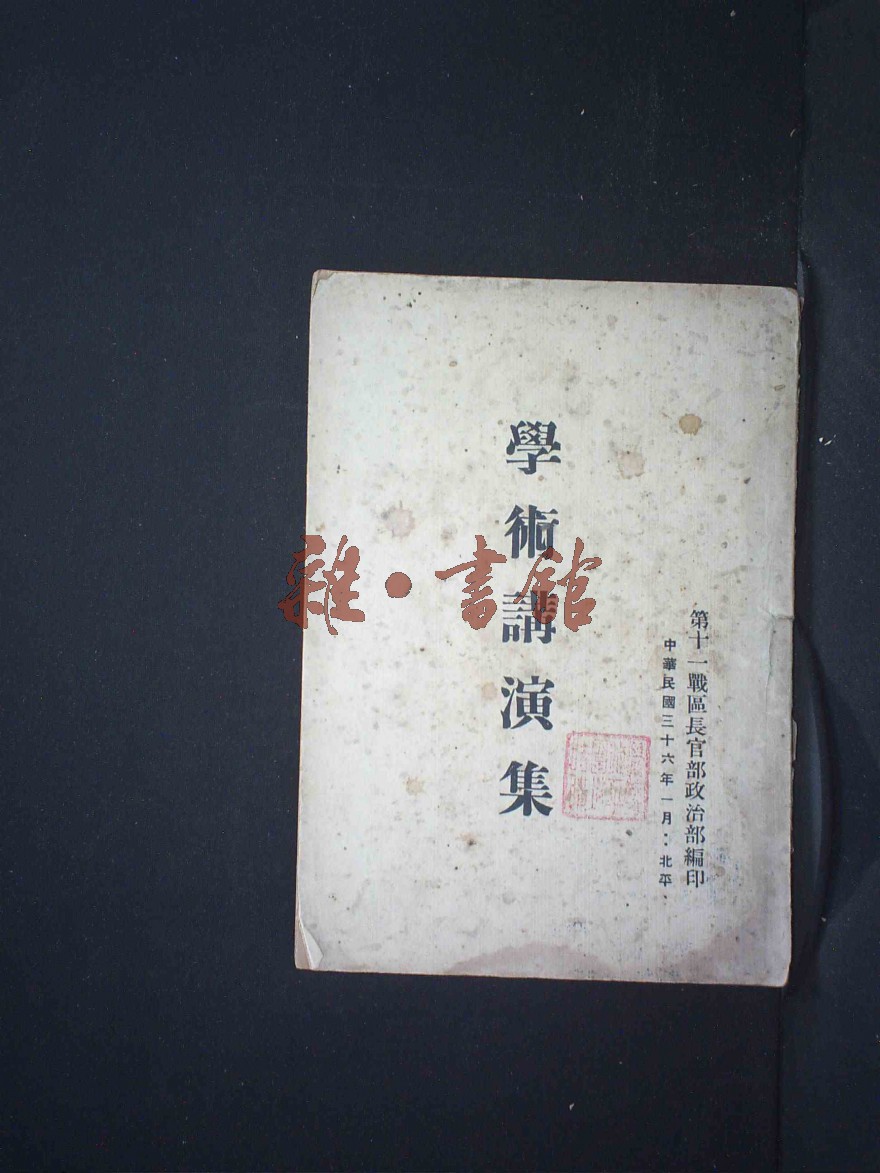 第十一戰區長官部政治部編印
中華民國三十六年一月：北平．
學術講演集
雜·書館